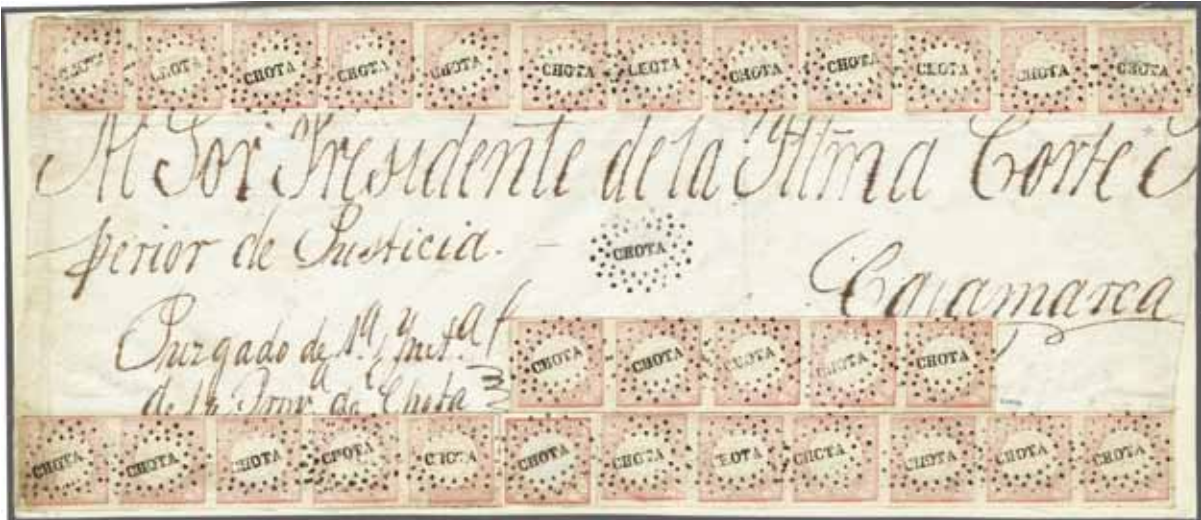 CHOTA CHOTA CHOTA CHOTA CHOTA CHOTA CHOTA CHOTA CHOTA CHOTA CHOTA CHOTA
Al Sor Presidente de la Iltma Corte S
perior de Justicia.
CHOTA
Cajamarca
Juzgado de 1a Inst.a
de la Prov.a de Chota
CHOTA CHOTA CHOTA CHOTA CHOTA
CHOTA CHOTA CHOTA CHOTA CHOTA CHOTA CHOTA CHOTA CHOTA CHOTA CHOTA CHOTA